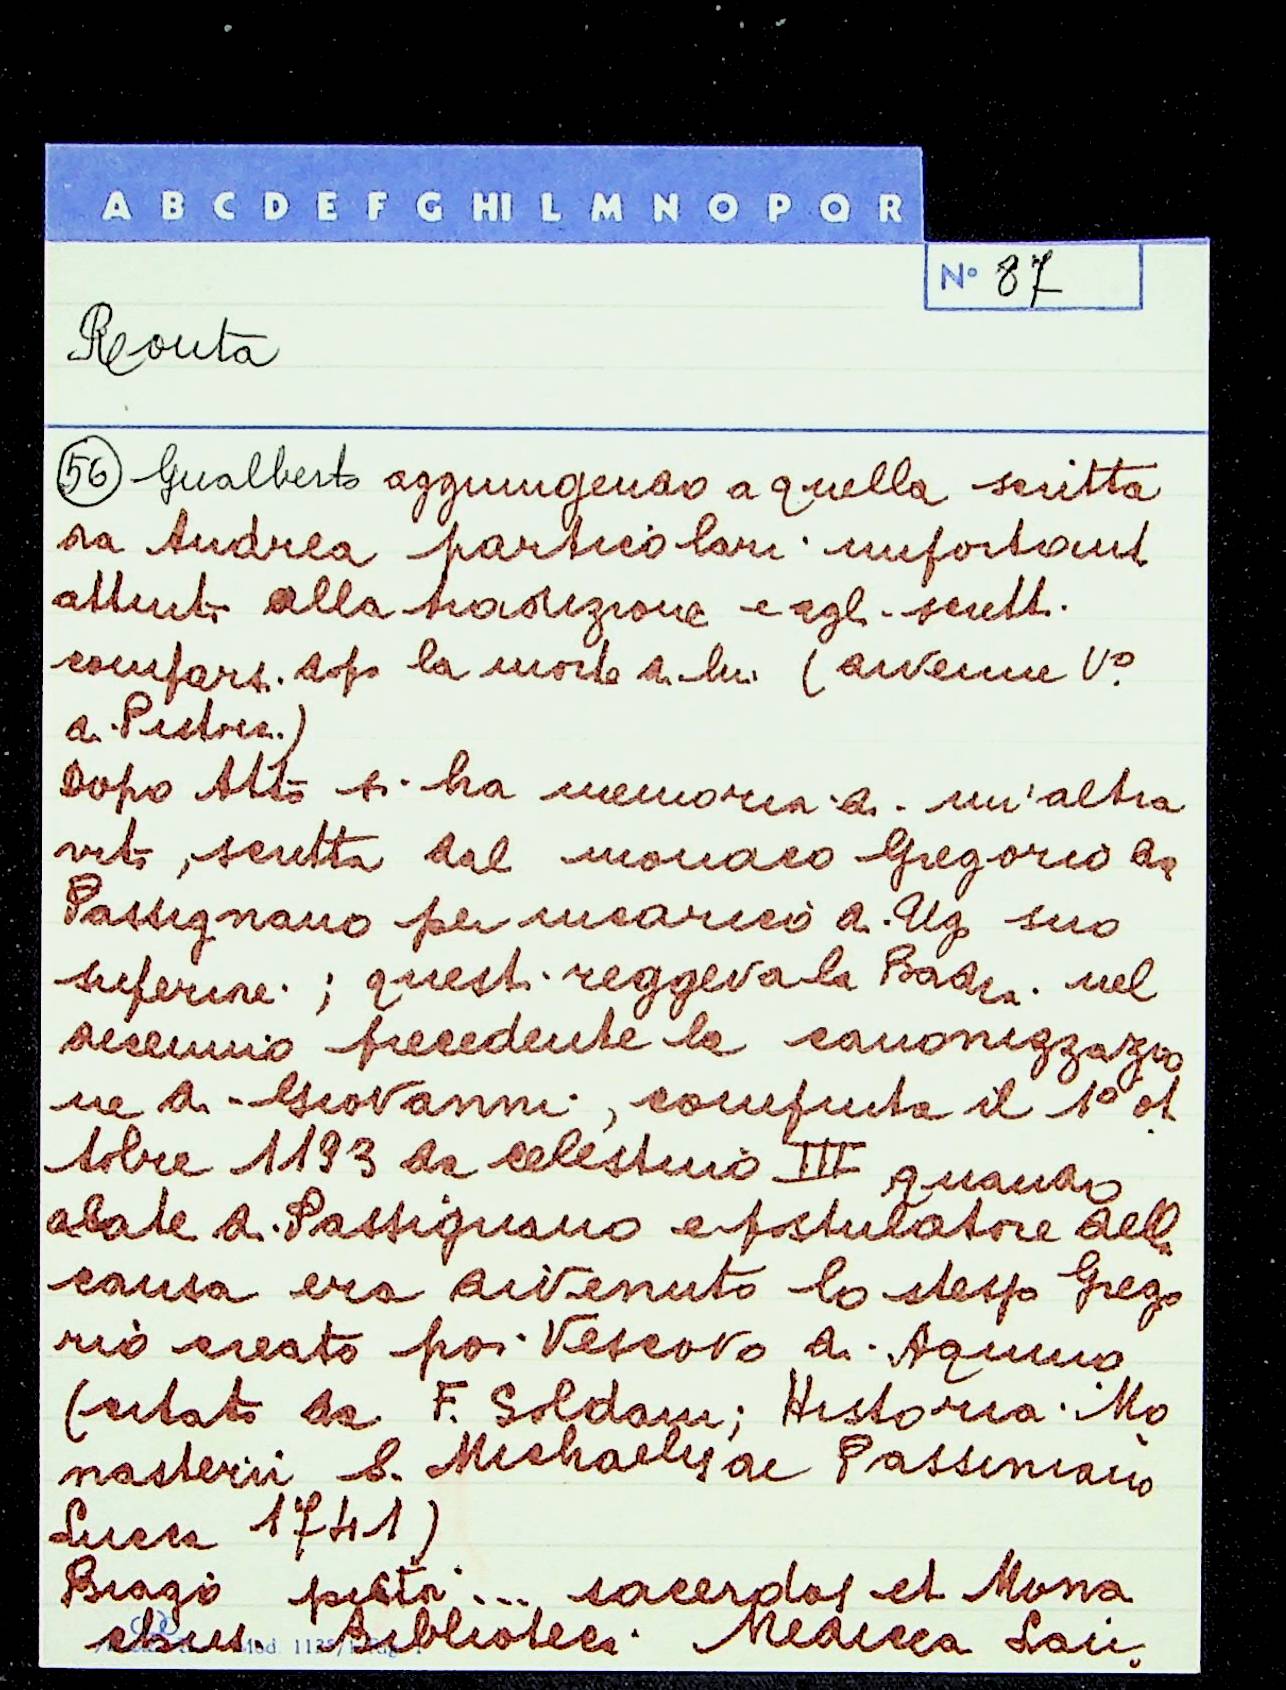 A B C D E F G HI L M N O P Q R
N° 87
Reouta
56 Gualberto aggiungendo a quella scritta
da Andrea particolari importanti
attinti alla tradizione e agli scritti
comparsi dopo la morte di lui (divenne V°
di Pistoia.)
Dopo Atto si ha memoria di un'altra
vita, scritta dal monaco Gregorio da
Passignano per incarico di Ugo suo
superiore; questi reggeva la Badia nel
decennio precedente la canonizzazio
ne di Giovanni, compiuta il 1° ot
tobre 1193 da Celestino III quando
abate di Passignano e postulatore della
causa era divenuto lo stesso Grego
rio creato poi Vescovo di Aquino
(citato da F. Soldani; Historia Mo
nasterii S. Michaelis de Passiniano
Lucca 1741)
Biagio ... sacerdos et Mona
chus. Biblioteca Medicea Lau.
Mod. 1135/